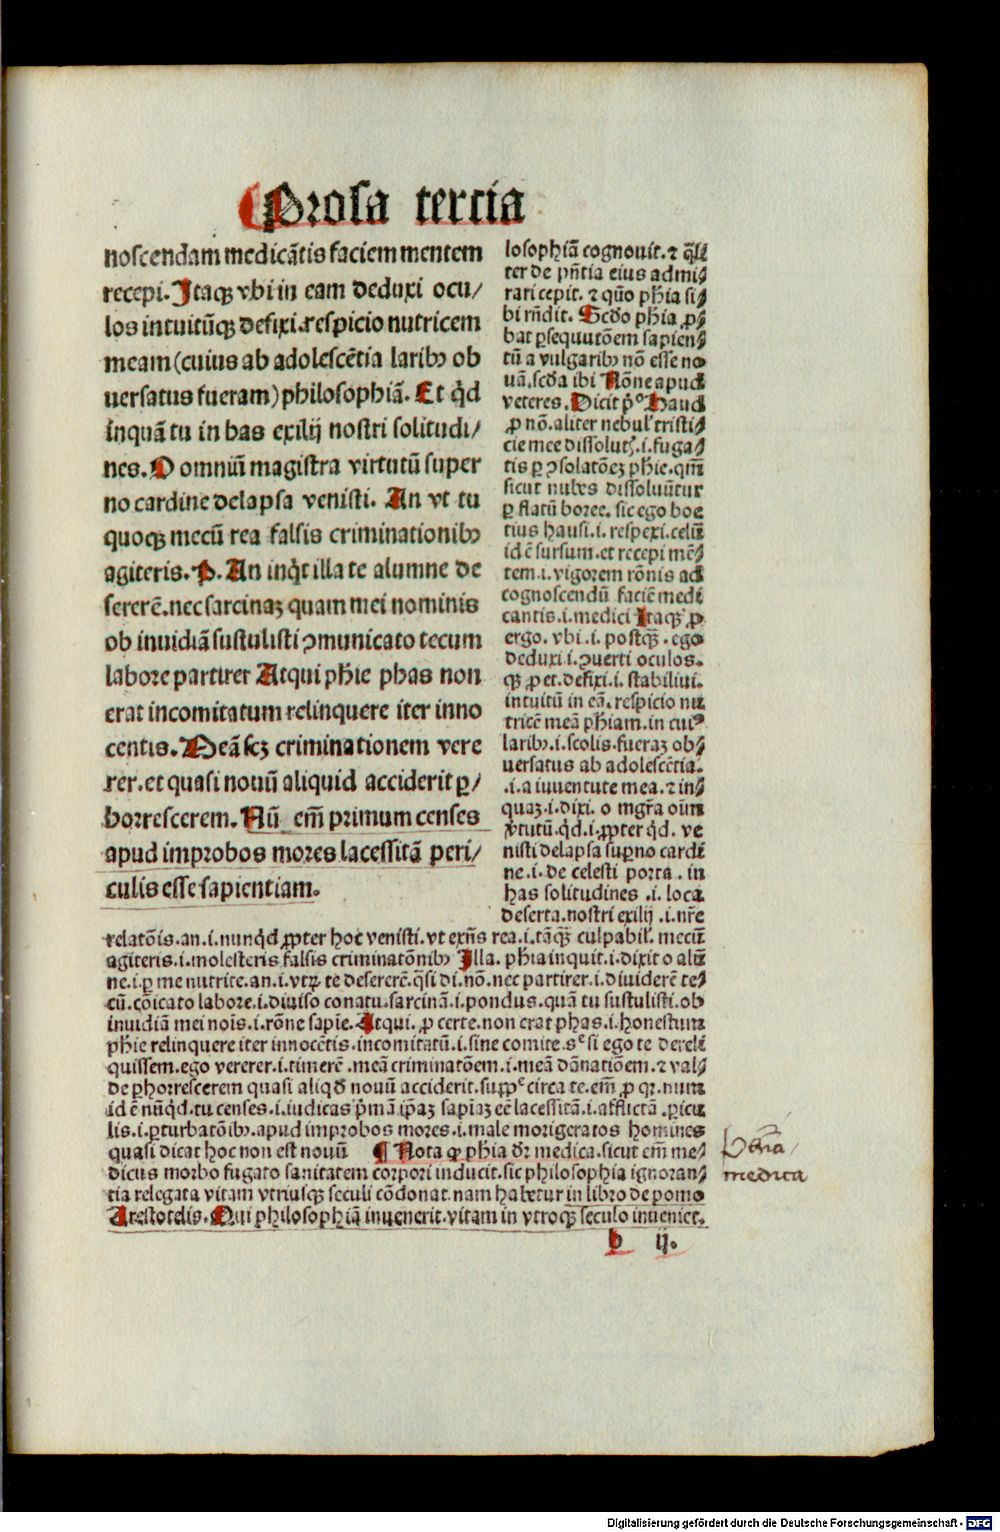 Prosa tercia
noscendam medicātis faciem mentem
recepi. Itaqꝫ vbi in eam deduxi ocu/
los intuitūqꝫ defixi.respicio nutricem
meam (cuius ab adolescētia laribꝰ ob
uersatus fueram) philosophiā. Et qͥd
inquā tu in has exilij nostri solitudi/
nes. O omniū magistra virtutū super
no cardine delapsa venisti. An vt tu
quoqꝫ mecū rea falsis criminationibꝰ
agiteris. P. An inqͥt illa te alumne de
sererē.nec sarcinaꝫ quam mei nominis
ob inuidiā sustulisti ꝯmunicato tecum
labore partirer Atqui phie phas non
erat incomitatum relinquere iter inno
centis. Meā scꝫ criminationem vere
rer.et quasi nouū aliquid acciderit ꝑ/
horrescerem. Nū em̄ primum censes
apud improbos mores lacessitā peri/
culis esse sapientiam.
losophiā cognouit. ⁊ qͣlī
ter de pn̄tia eius admi/
rari cepit. ⁊ quō phia si/
bi rn̄dit. Scd̄o phia ꝓ/
bat ꝑsequutōem sapien/
tū a vulgaribꝰ nō esse no
uā.scd̄a ibi Nōne apud
veteres. Dicit pͥº Haud
ꝓ nō.aliter nebul' tristi/
cie mee dissolut'.i.fuga/
tis ꝑ ꝯsolatōeꝫ phie.qm̄
sicut nubes dissoluūtur
ꝑ flatū boree. sic ego boe
tius hausi.i.respexi.celū
id ē sursum.et recepi mē/
tem.i.vigorem rōnis ad
cognoscendū faciē medi
cantis.i.medici Itaqꝫ ꝓ
ergo. vbi.i.postqͣꝫ.ego
deduxi.i.ꝯuerti oculos.
qꝫ ꝓ et.defixi.i.stabiliui.
intuitū in eā.respicio nu
tricē meā phiam.in cuiꝰ
laribꝰ.i.scolis.fueraꝫ ob/
uersatus ab adolescētia.
.i.a iuuentute mea.⁊ in/
quaꝫ.i.dixi. o mgr̄a oīm
v̓tutū.qͥd.i.ꝓpter qͥd. ve
nisti delapsa suꝑno cardi
ne.i.de celesti porta.in
has solitudines .i.loca
deserta.nostri exilij .i.nr̄e
relatōis.an.i.nunqͥd ꝓpter hoc venisti.vt exn̄s rea.i.tāqͣꝫ culpabil'.mecū
agiteris.i.molesteris falsis criminatōnibꝰ Illa. phia inquit.i.dixit o alū
ne.i.ꝑ me nutrite.an.i.vtꝝ te desererē.qͣsi di.nō.nec partirer.i.diuiderē te/
cū.cōicato labore.i.diuiso conatu.sarcinā.i.pondus.quā tu sustulisti.ob
inuidiā mei nois.i.rōne sapīe. Atqui.ꝓ certe.non erat phas.i.honestum
phie relinquere iter innocētis.incomitatū.i.sine comite.sᵉ si ego te dereli
quissem.ego vererer.i.timerē .meā criminatōem.i.meā dānatiōem.⁊ val/
de ꝑhorrescerem quasi aliqͥd nouū acciderit.supp̄ᵉ circa te.em̄ ꝓ qꝛ.num
id ē nūqͥd.tu censes.i.iudicas pͥmā ip̄aꝫ sapīaꝫ eē lacessitā.i.afflictā.ꝑicu
lis.i.ꝑturbatōibꝰ.apud improbos mores.i.male morigeratos homines
quasi dicat hoc non est nouū ¶ Nota ꝙ phia dr̄ medica.sicut em̄ me/
dicus morbo fugato sanitatem corpori inducit.sic philosophia ignoran/
tia relegata vitam vtriusqꝫ seculi cōdonat.nam habetur in libro de pomo
Arestotelis. Qui philosophiā inuenerit.vitam in vtroqꝫ seculo inueniet.
b ij.
phīa
medica
Digitalisierung gefördert durch die Deutsche Forschungsgemeinschaft - DFG